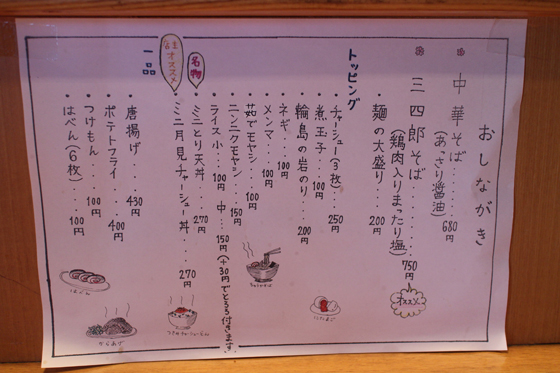 おしながき
中華そば........680円
(あっさり醤油)
三四郎そば........750円
(鶏肉入りまったり塩)
オススメ
麺の大盛り...200円
トッピング
チャーシュー(3枚)...250円
煮玉子...100円
輪島の岩のり...200円
ネギ...100円
メンマ...100円
茹でモヤシ...100円
ニンニクモヤシ...150円
ライス 小...100円 中...150円(+30円でとろろ付きます。
名物
ミニとり天丼...270円
店主オススメ
ミニ月見チャーシュー丼...270円
一品
唐揚げ...430円
ポテトフライ...400円
つけもん...100円
はべん(6枚)...100円
はべん
からあげ
にたまご